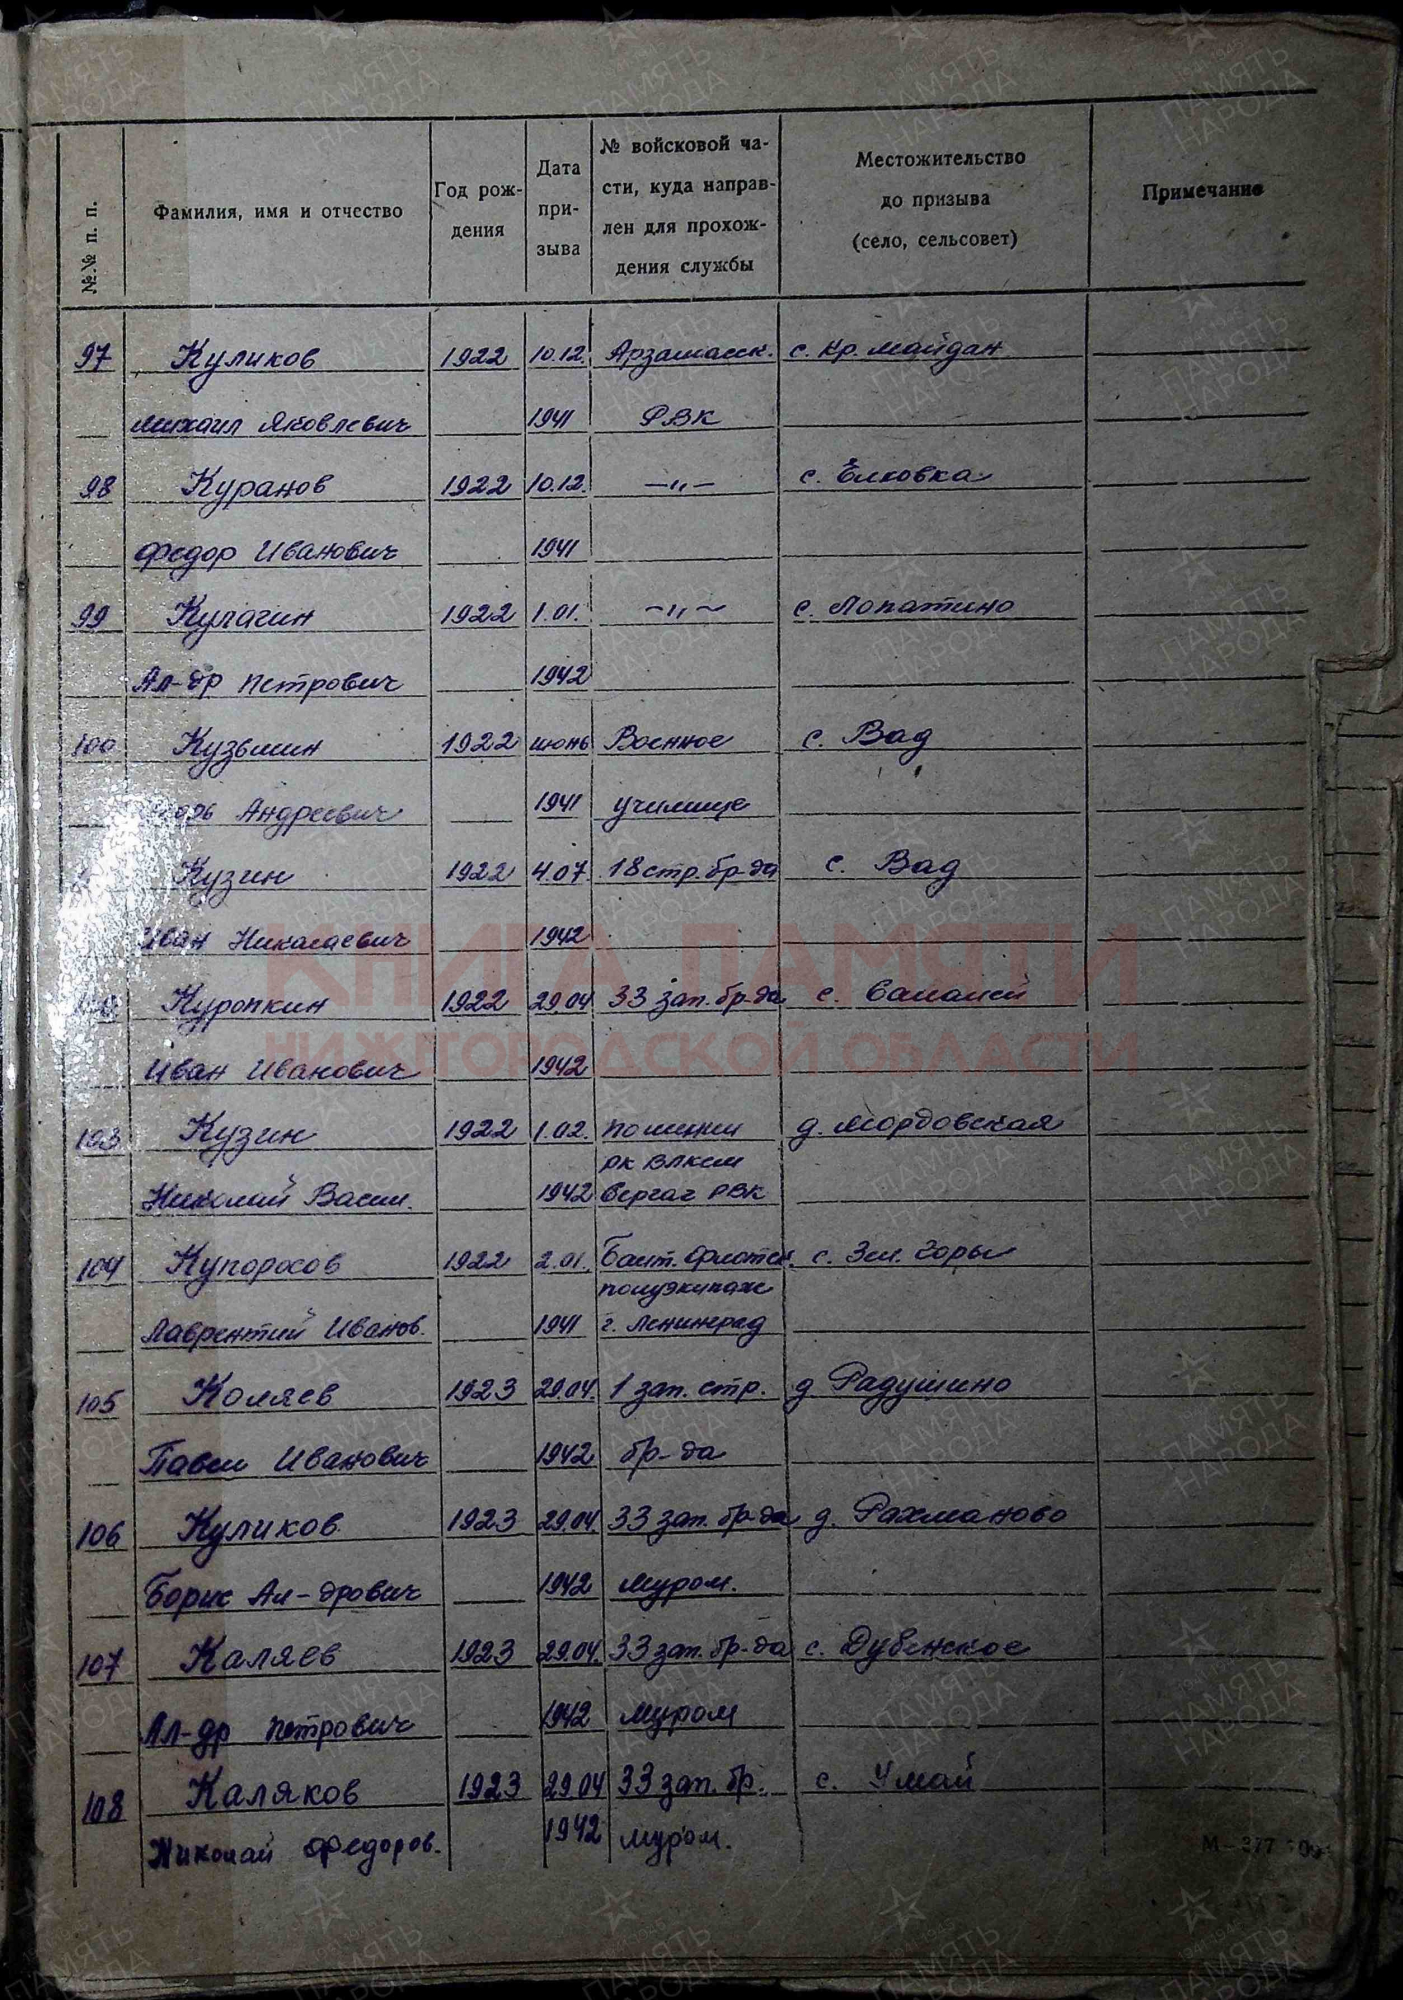 №№ п. п.
Фамилия, имя и отчество
Год рож-
дения
Дата
при-
зыва
№ войсковой ча-
сти, куда направ-
лен для прохож-
дения службы
Местожительство
до призыва
(село, сельсовет)
Примечание
97 Куликов 1922 10.12. с. Кр. Майдан
Михаил Яковлевич 1941 РВК
98 Куранов 1922 10.12. —〃— с. Ёлховка
Федор Иванович 1941
99 Кулагин 1922 1.01. —〃— с. Лопатино
Ал-др Петрович 1942
100 Кузьмин 1922 июнь Военное с. Вад
Андреевич 1941 училище
Кузин 1922 4.07 18 стр. бр-да с. Вад
Иван Николаевич 1942
Куропкин 1922 29.04 33 зап. бр-да с.
Иван Иванович 1942
103 Кузин 1922 1.02. по линии д. Мордовская
РК ВЛКСМ
Николай Васил. 1942 Сергач РВК
104 Купоросов 1922 2.01. Балт. флотск. с. Зел. Горы
полуэкипаж
Лаврентий Иванов. 1941 г. Ленинград
105 Коляев 1923 29.04. 1 зап. стр. д Радушино
Павел Иванович 1942 бр-да
106 Куликов 1923 29.04. 33 зап. бр-да д. Рахманово
Борис Ал-дрович 1942 Муром.
107 Каляев 1923 29.04. 33 зап. бр-да с. Дубенское
Ал-др Петрович 1942 Муром
108 Каляков 1923 29.04 33 зап. бр. с. Умай
Николай Федоров. 1942 Муром.
КНИГА ПАМЯТИ
НИЖЕГОРОДСКОЙ ОБЛАСТИ
ПАМЯТЬ
НАРОДА